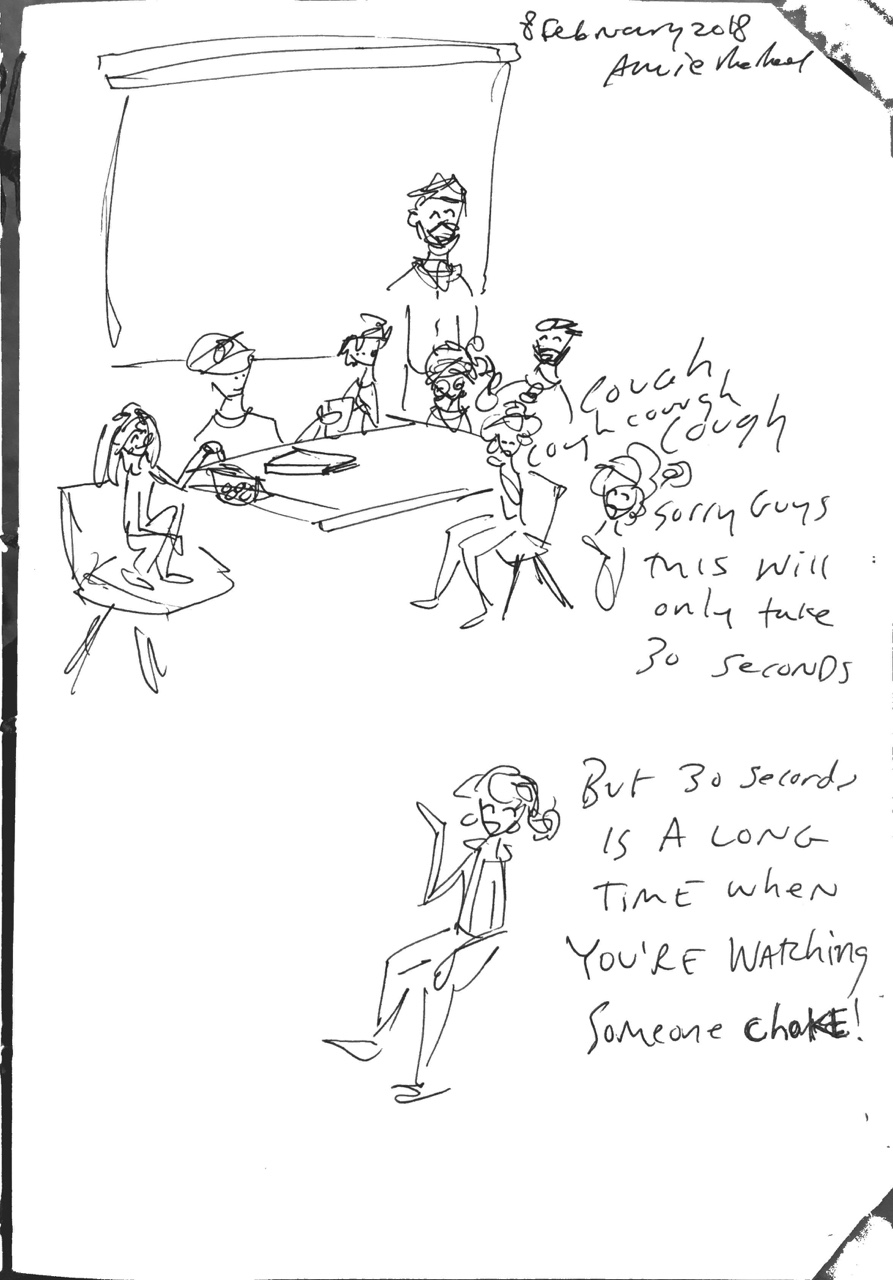 8 February 2018
Annie
cough
cough cough
cough
Sorry Guys
this will
only take
30 seconds
But 30 seconds
IS A LONG
TIME when
YOU'RE WATching
Someone chOKE!